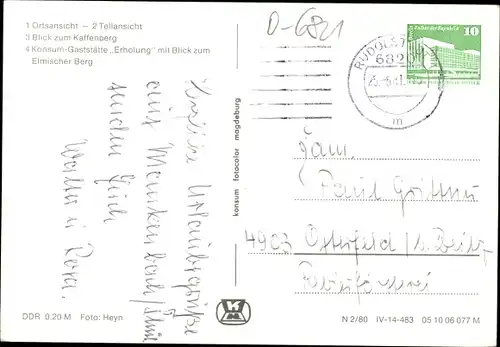 1 Ortsansicht – 2 Teilansicht
3 Blick zum Kaffenberg
4 Konsum-Gaststätte „Erholung“ mit Blick zum
Elmischer Berg
D-6821
RUDOLSTADT
6820
m
10
Herzliche Urlaubsgrüße
aus Meuselbach/Thür.
senden Euch
Walter u. Dora.
konsum fotocolor magdeburg
Fam.
Paul
4903 Osterfeld / b. Zeitz
DDR 0,20 M Foto: Heyn
N 2/80 IV-14-483 05 10 06 077 M